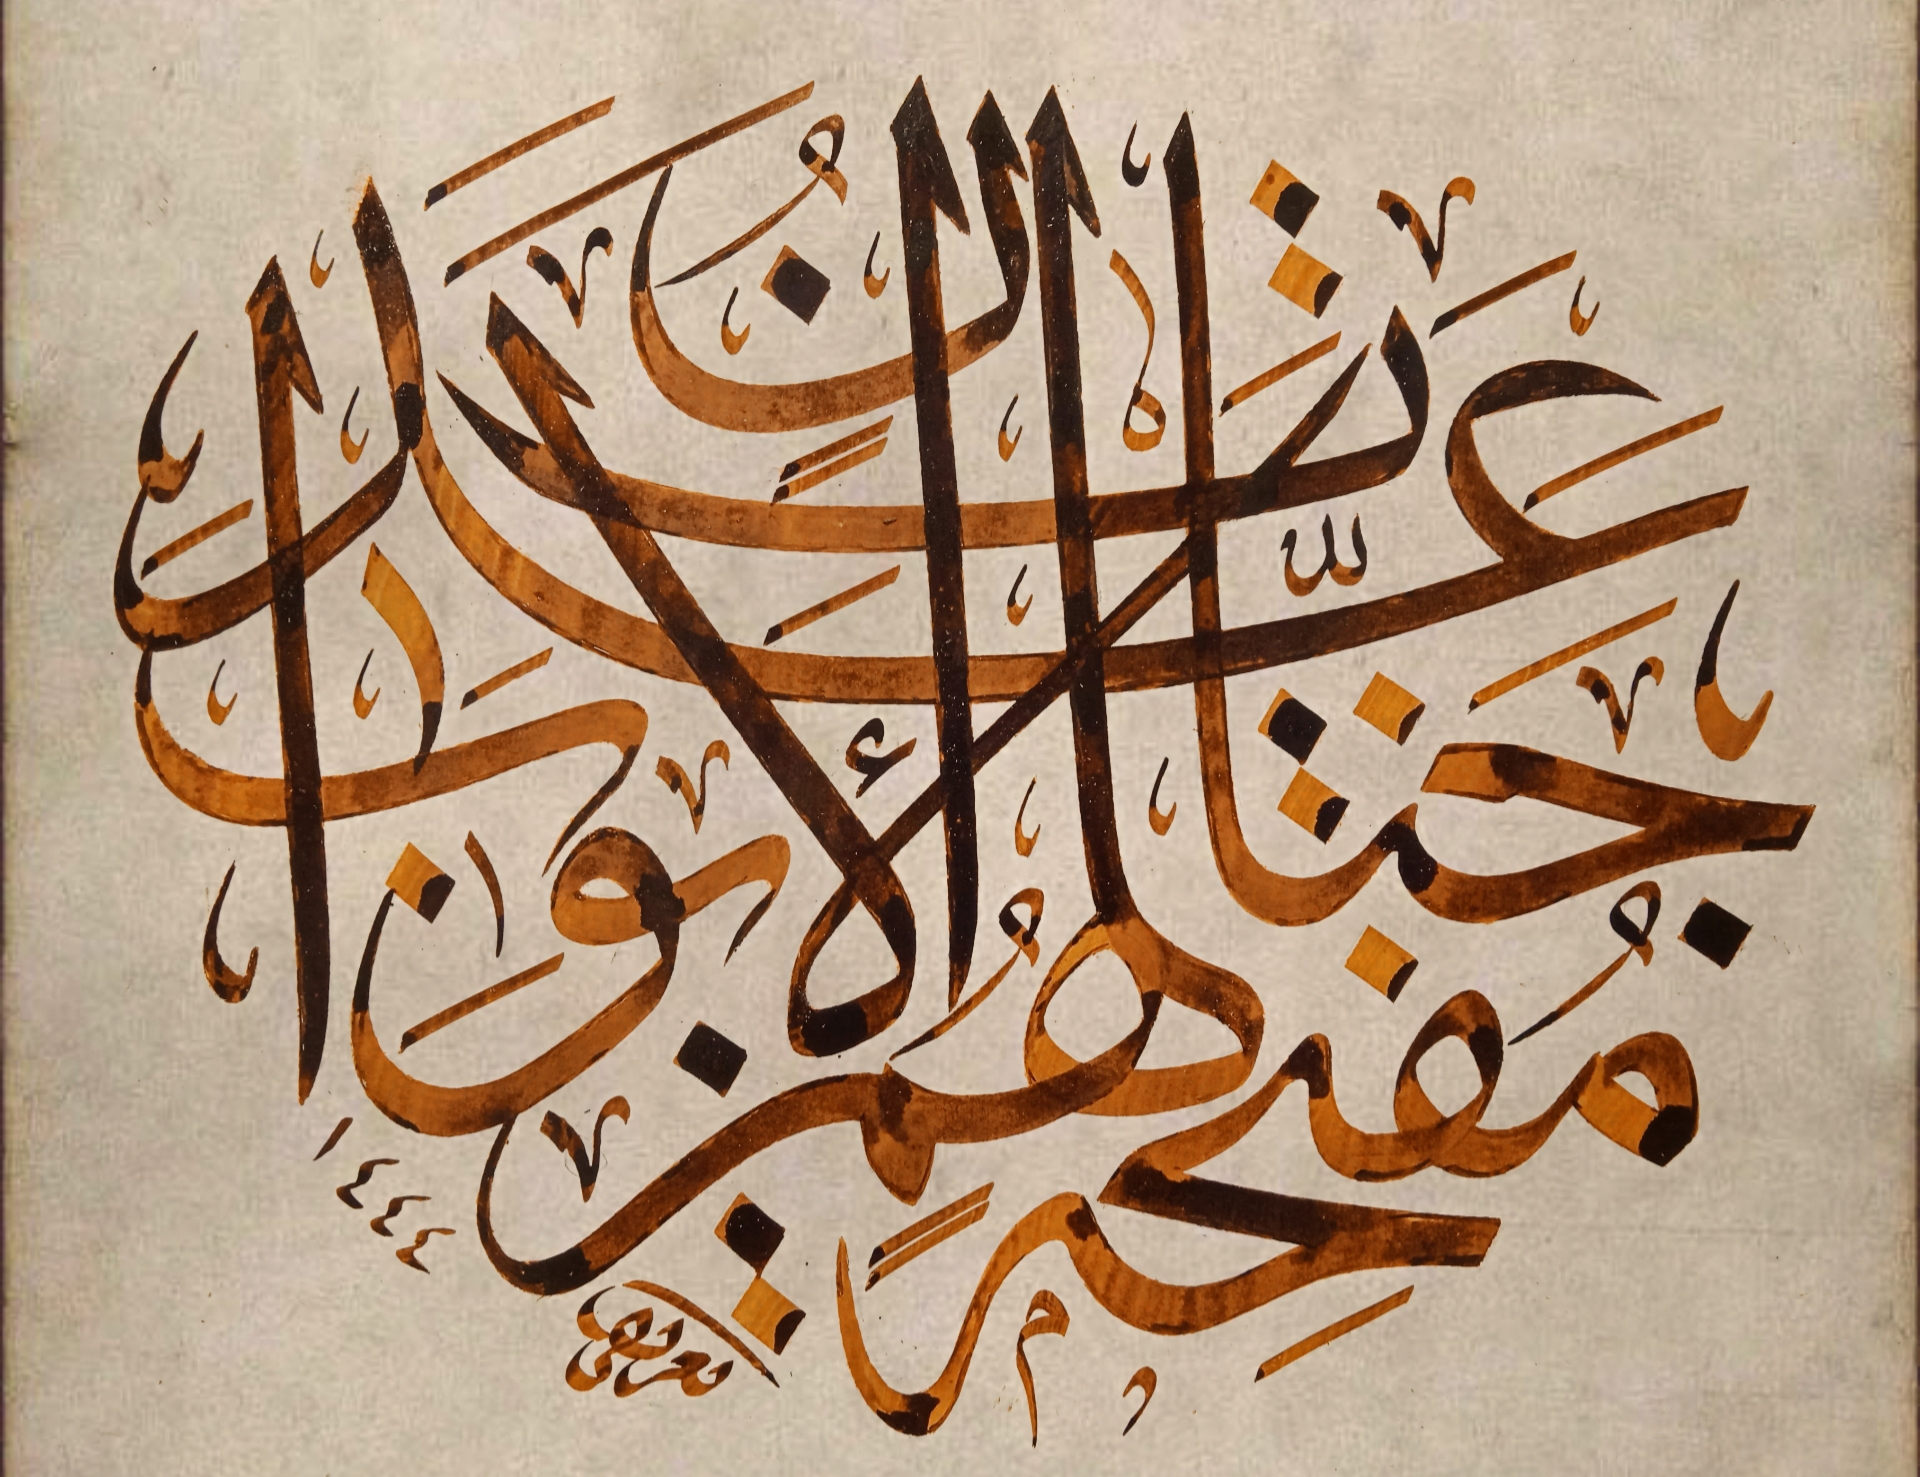 جَنَّاتِ عَدْنٍ
مُفَتَّحَةً لَهُمُ الْأَبْوَابُ
١٤٤٤